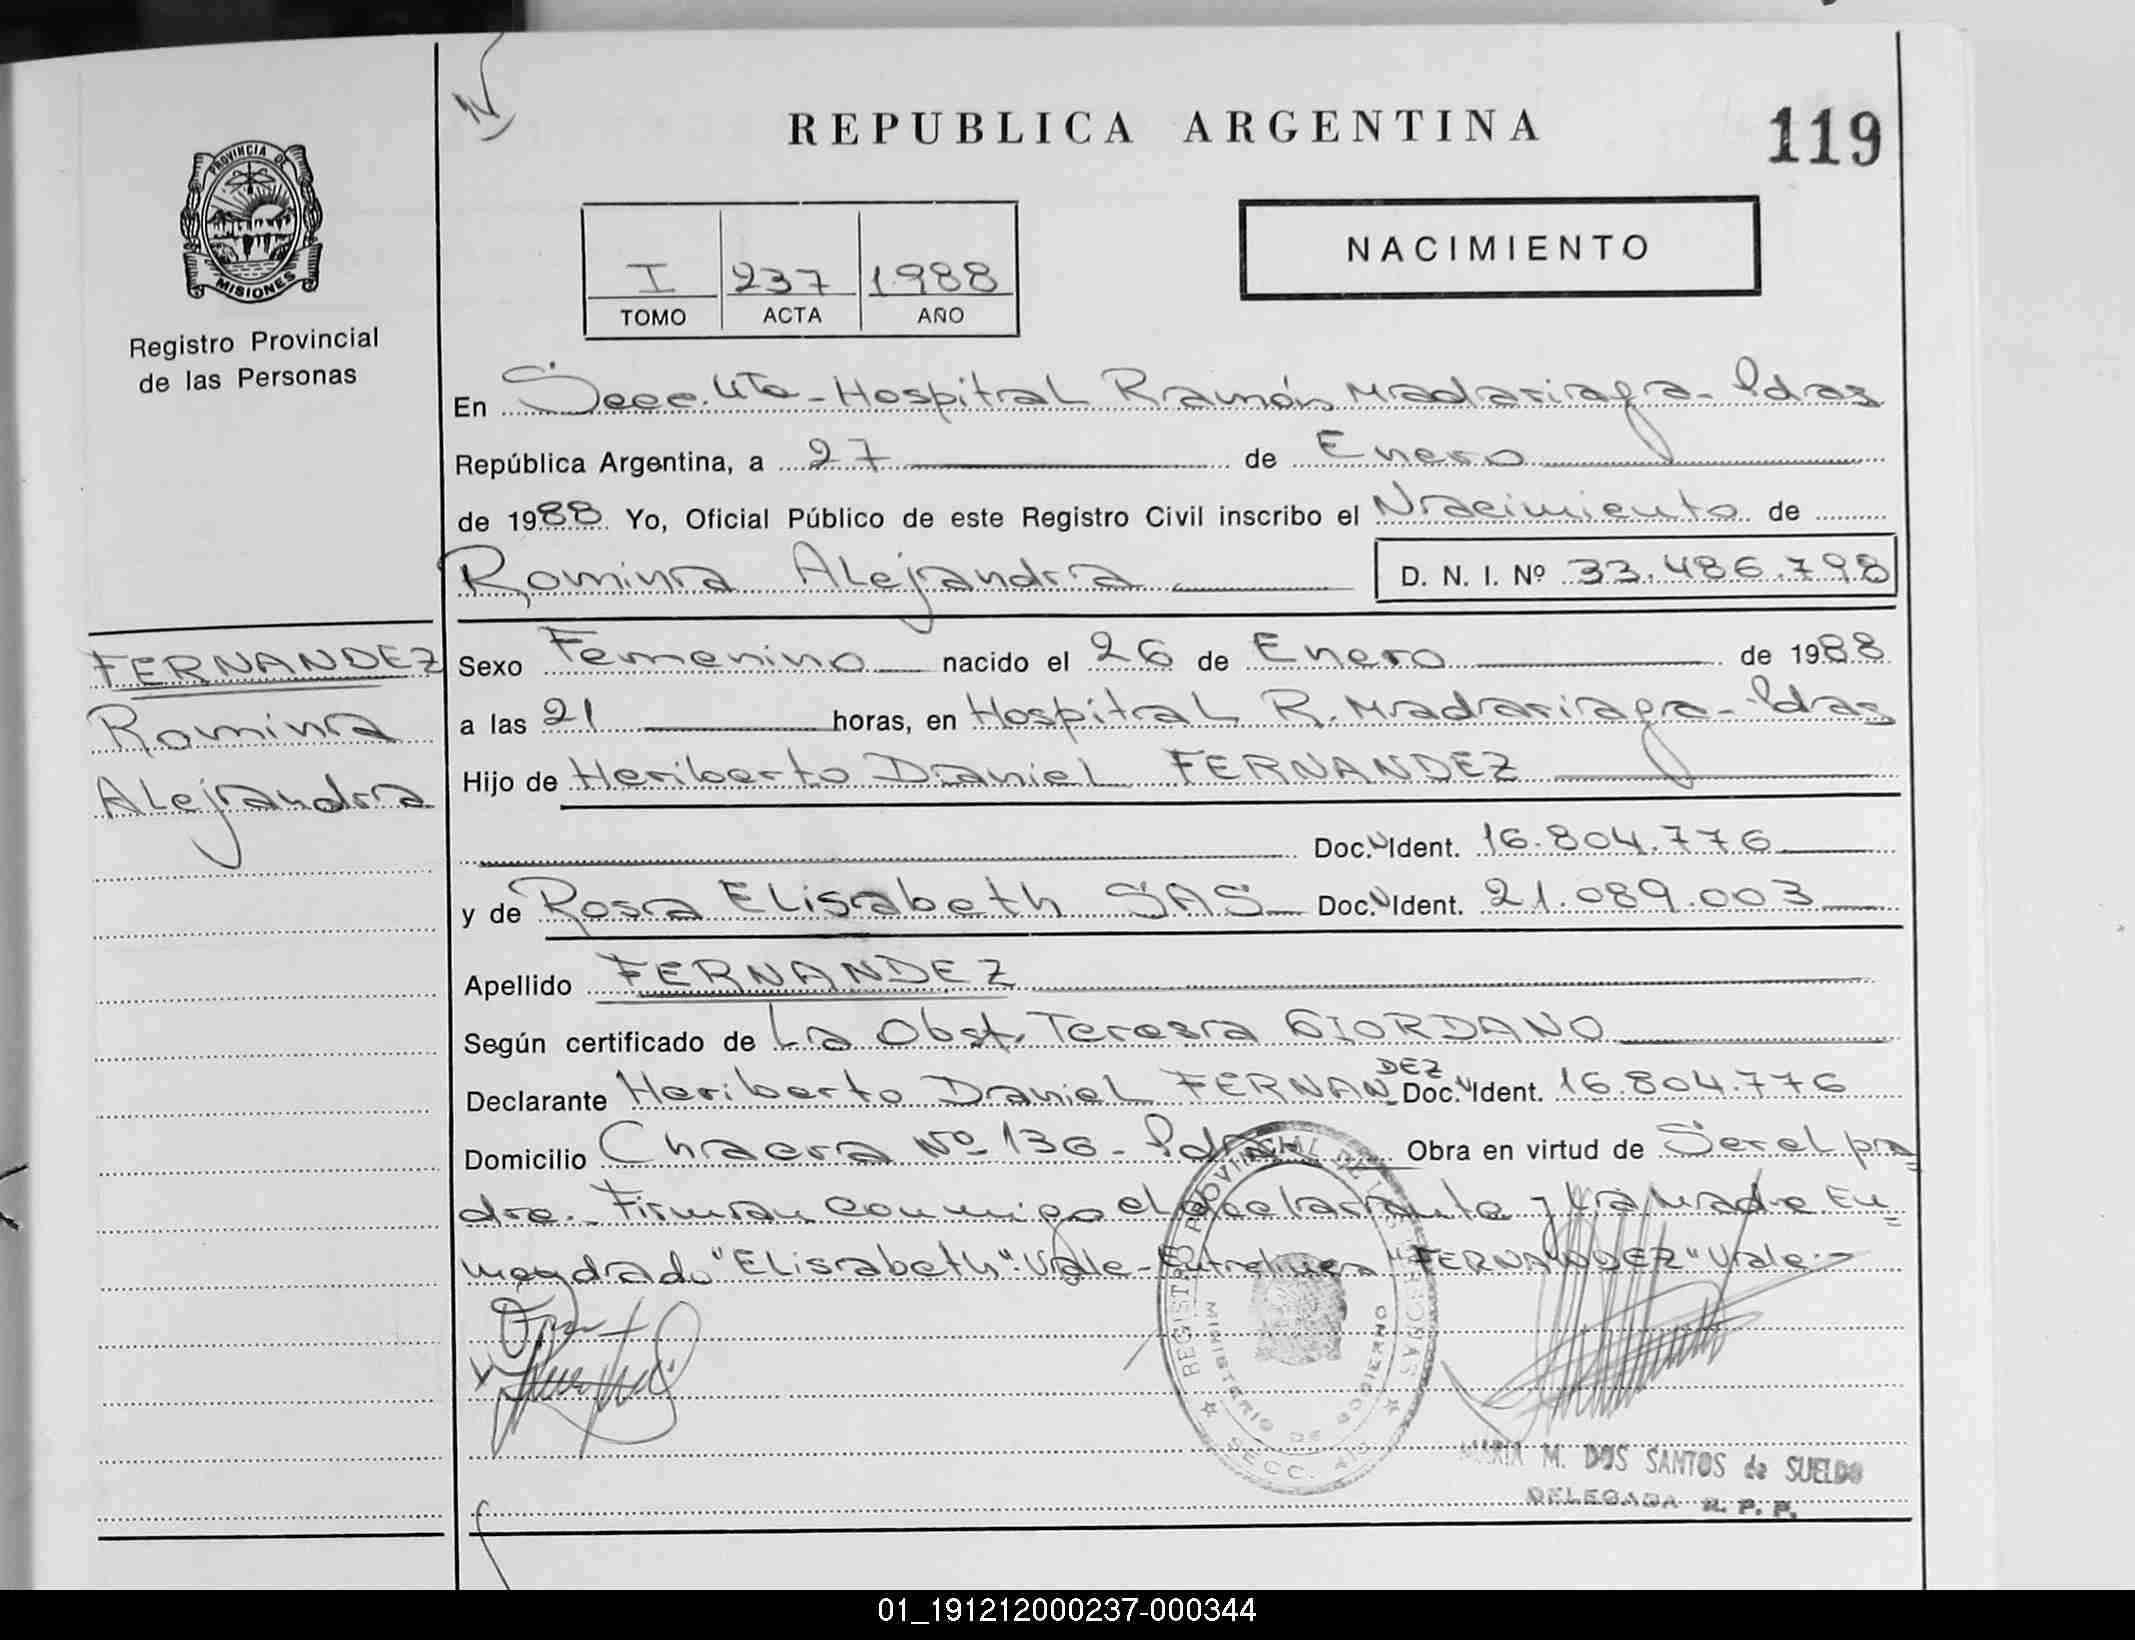 REPUBLICA ARGENTINA
119
PROVINCIA DE
MISIONES
Registro Provincial
de las Personas
I 237 1988
TOMO ACTA AÑO
NACIMIENTO
En Secc. 4ta - Hospital Ramón Madariaga - Pdas
República Argentina, a 27 de Enero
de 1988 Yo, Oficial Público de este Registro Civil inscribo el Nacimiento de
Romina Alejandra D. N. I. Nº 33.486.798
FERNANDEZ
Romina
Alejandra
Sexo Femenino nacido el 26 de Enero de 1988
a las 21 horas, en Hospital R. Madariaga - Pdas
Hijo de Heriberto Daniel FERNANDEZ
Doc. Ident. 16.804.776
y de Rosa Elisabeth SAS Doc. Ident. 21.089.003
Apellido FERNANDEZ
Según certificado de La Obst. Teresa GIORDANO
Declarante Heriberto Daniel FERNANDEZ Doc. Ident. 16.804.776
Domicilio Chacra Nº 136 - Pdas Obra en virtud de Ser el pa=
dre. - Firman conmigo el declarante y la Madre En=
mendado "Elisabeth". Vale - Entrelinea "FERNANDEZ" Vale -
REGISTRO PROVINCIAL DE LAS PERSONAS
MINISTERIO DE GOBIERNO
SECC. 4ta
MARIA M. DOS SANTOS de SUELDO
DELEGADA R. P. P.
01_191212000237-000344